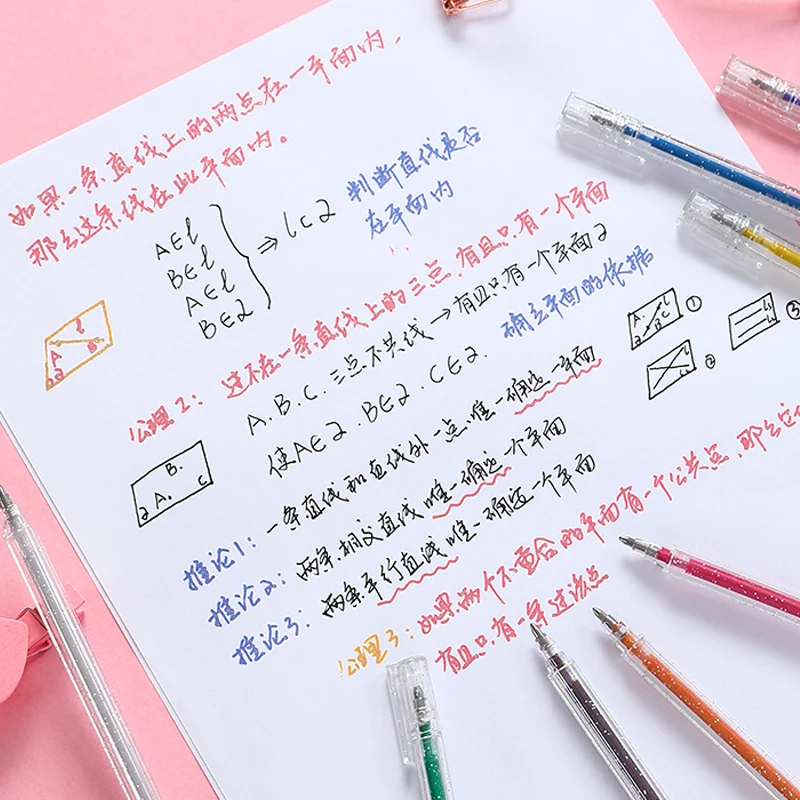 如果一条直线上的两点在一平面内，
那么这条线在此平面内。
A∈l
B∈l
A∈l
B∈2
⇒ l⊂2
判断直线是否
在平面内
l
A B
2
公理2：过不在一条直线上的三点，有且只有一个平面
A.B.C.三点不共线→有且只有一个平面2
使A∈2.B∈2.C∈2.
确立平面的依据
①
②
③
B.
A. C
2
推论1：一条直线和直线外一点唯一确定一平面
推论2：两条相交直线唯一确定一个平面
推论3：两条平行直线唯一确定一个平面
公理3：如果两个不重合的平面有一个公共点，那么它
有且只有一条过该点